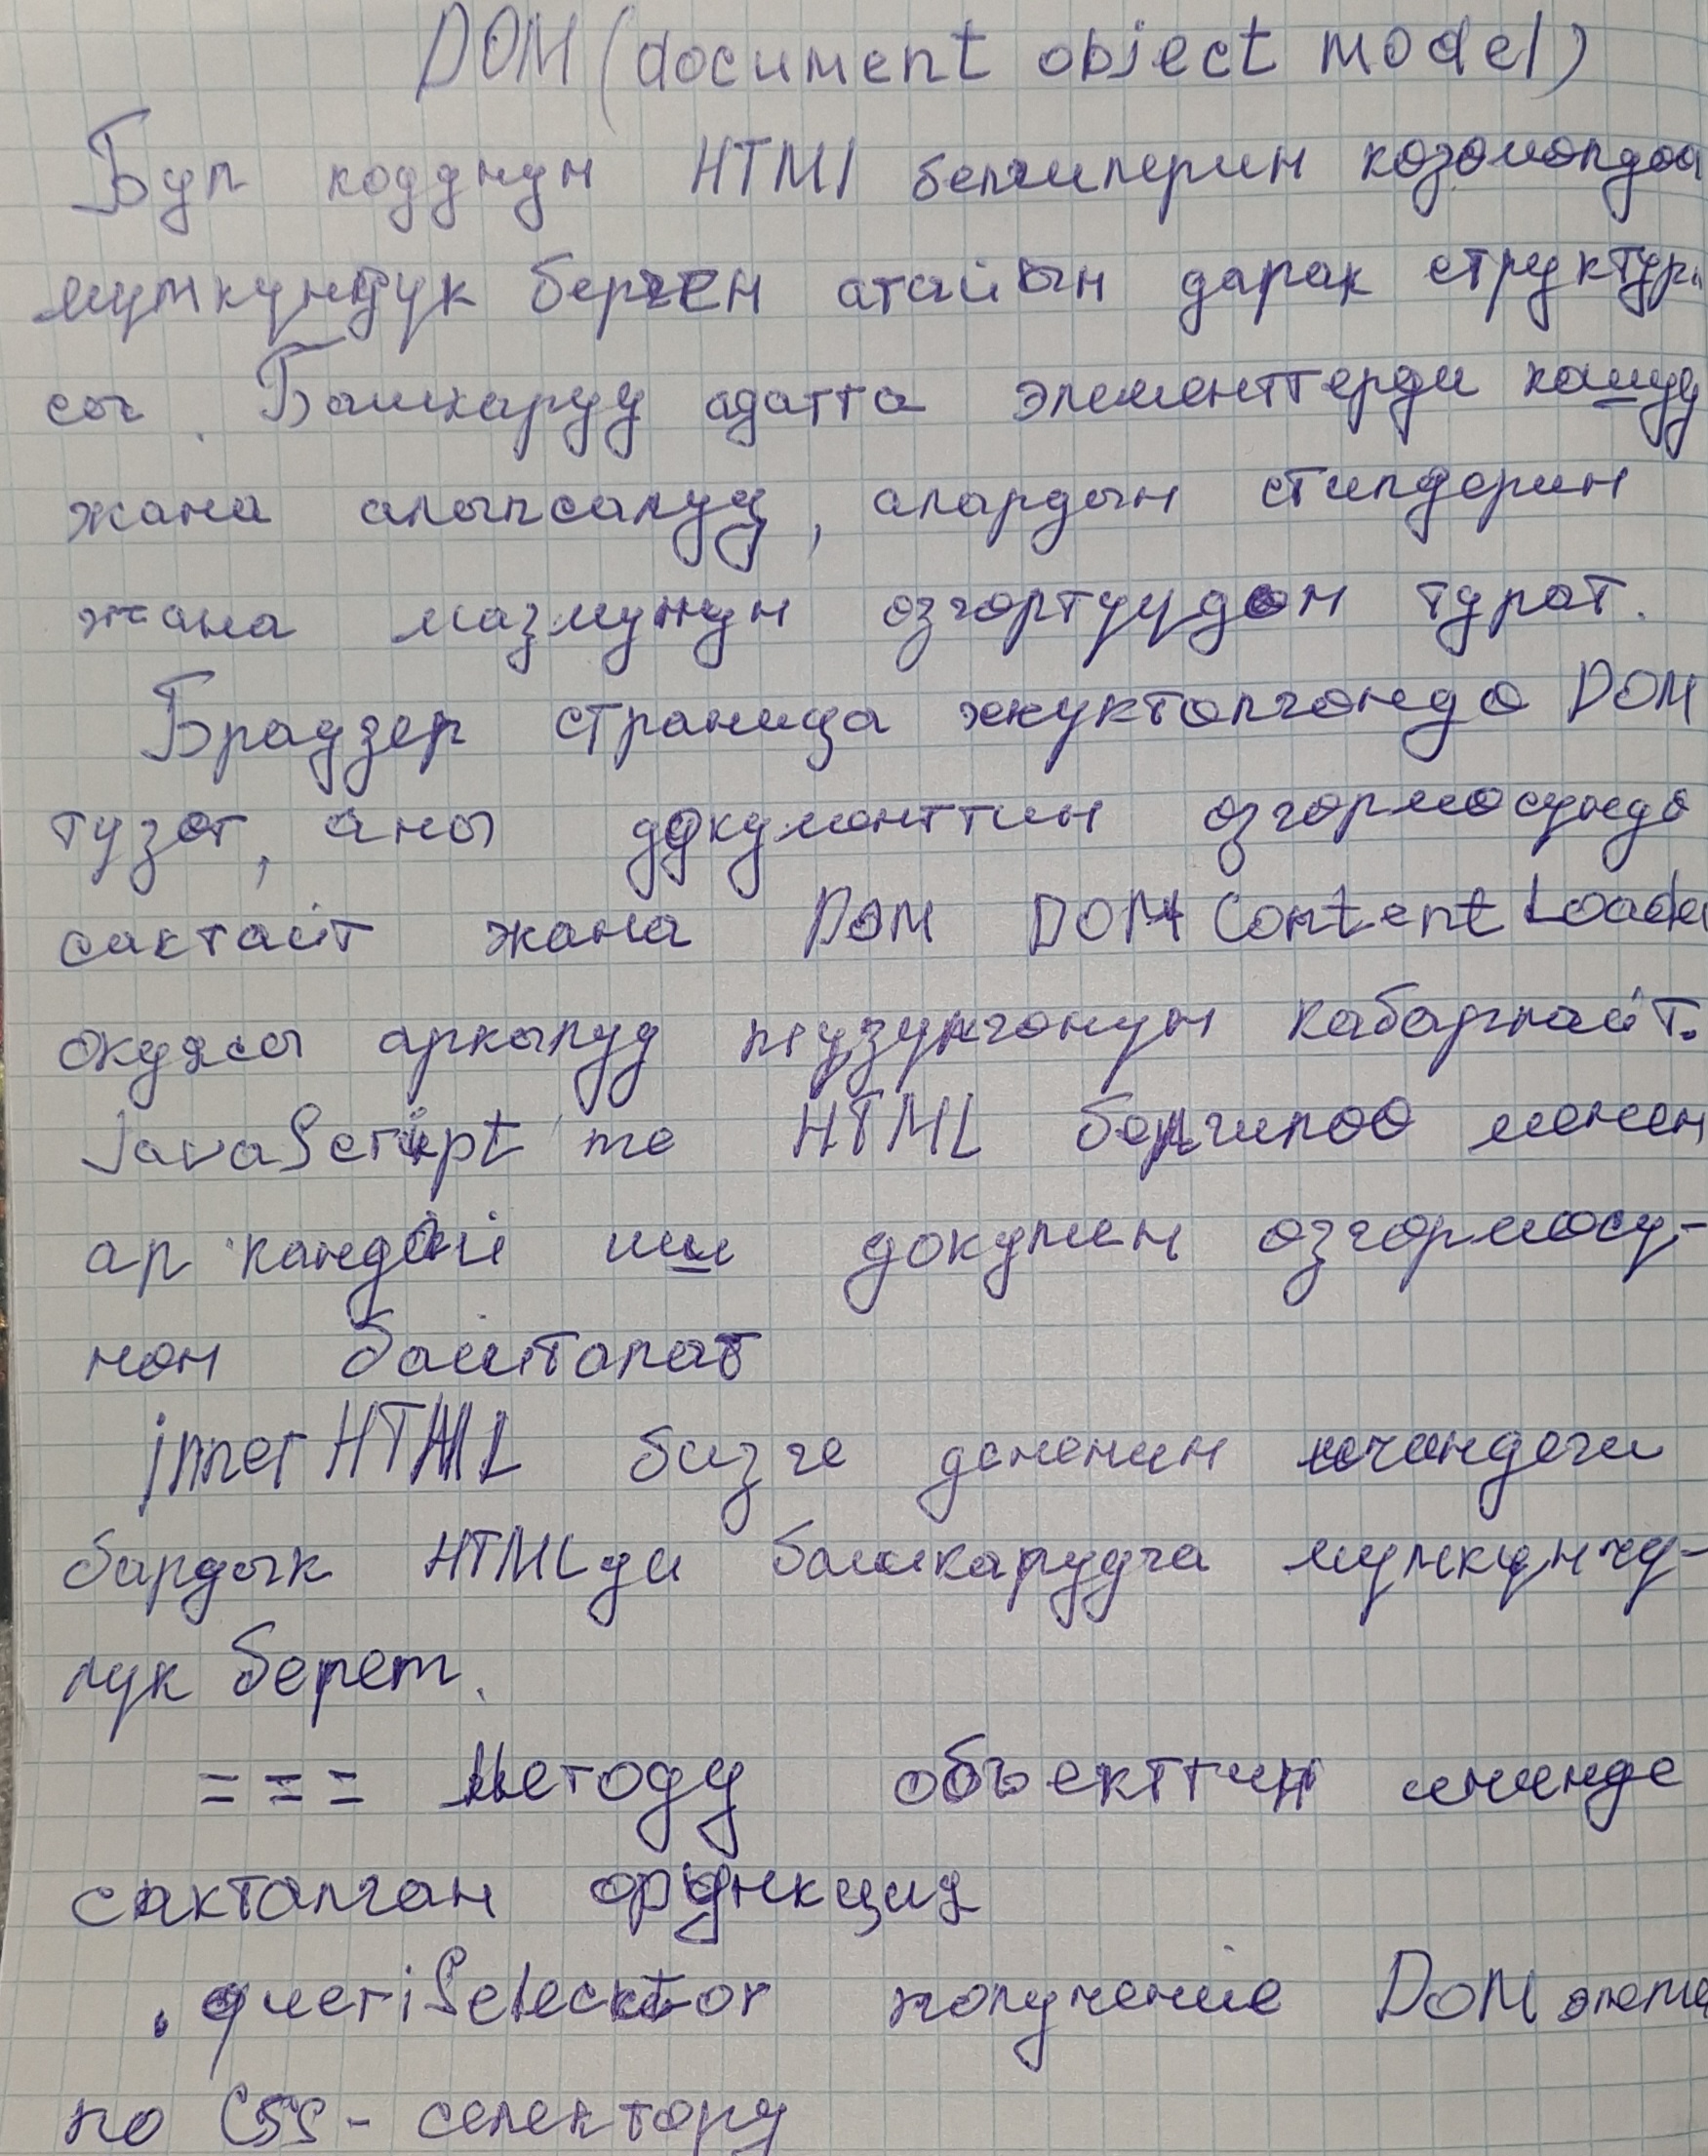 DOM (document object model)
Бул коддунун HTMl белгилерин козомолдоо
мумкунчулук берген атайын дарак структура
сы. Башкаруу адатта элементтерди кошуу
жана алыпсалуу, алардын стилдерин
жана мазмунун озгортуудон турат.
Браузер страница жуктолгондо DOM
тузот, аны документтин озгормосундо
сактайт жана DOM DOM Content Loaded
окуясы аркылуу тузулгонун кабарлайт.
JavaScript те HTML белгилоо менен
ар кандай иш докумен озгормосу-
нон башталат
inner HTML бизге дененин ичиндеги
бардык HTMLди башкарууга мумкунчу-
лук берет.
=== Методу объекттин ичинде
сакталган функция
. queriSelecktor получение DOM элеме
по CSS - селектору